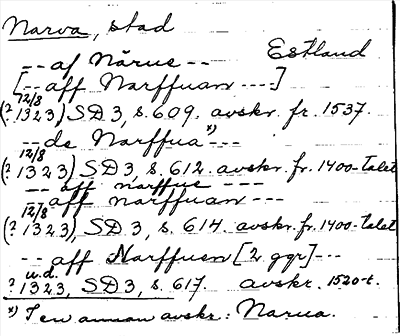 Narva, stad
-- af Närue -- Estland
[-- aff Narffuan ---]
12/8
(? 1323) SD 3, s. 609. avskr. fr. 1537.
-- de Narffua *) --
12/8
(? 1323) SD 3, s. 612. avskr. fr. 1400-talet
-- aff narffue ---
-- aff narffuan ---
12/8
(? 1323), SD 3, s. 614. avskr. fr. 1400-talet
-- aff Narffuen [2 ggr] ---
u.d.
? 1323, SD 3, s. 617. avskr. 1520-t.
*) I en annan avskr: Narua.